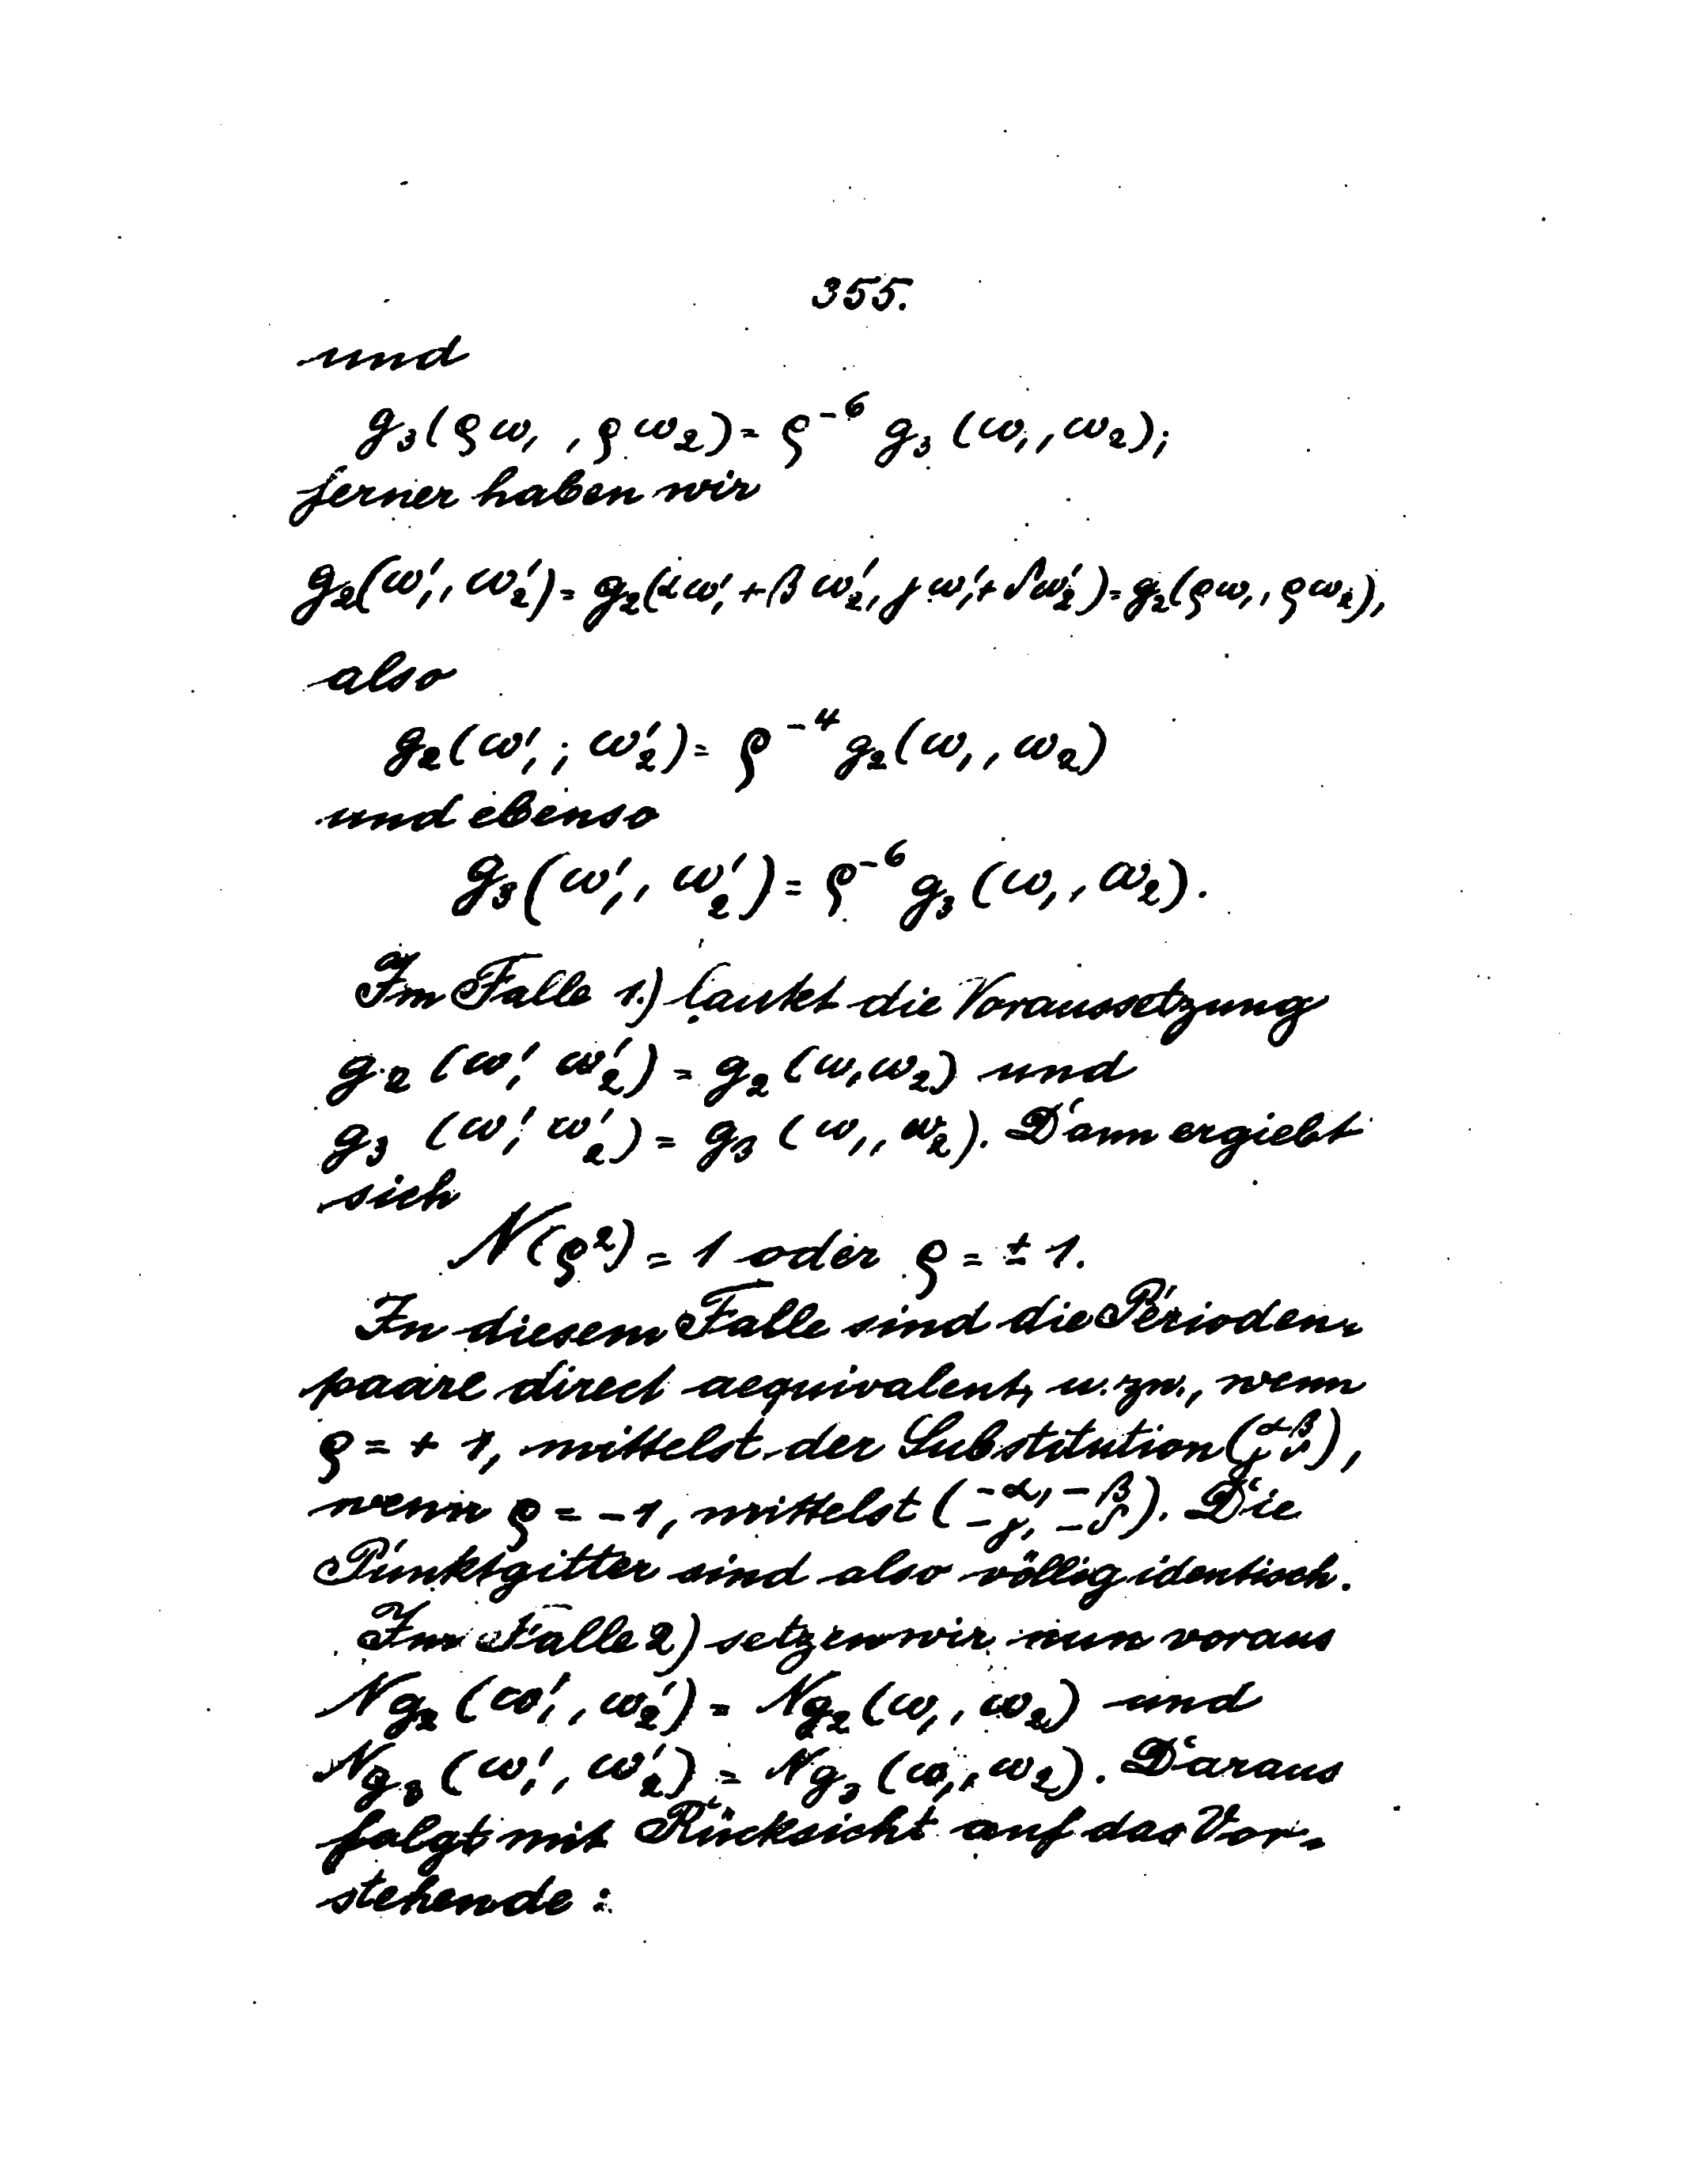 355.
und
g₃(ϱω₁, ϱω₂) = ϱ⁻⁶ g₃(ω₁, ω₂);
ferner haben wir
g₂(ω₁′, ω₂′) = g₂(αω₁′ + βω₂′, γω₁′ + δω₂′) = g₂(ϱω₁, ϱω₂),
also
g₂(ω₁′; ω₂′) = ϱ⁻⁴ g₂(ω₁, ω₂)
und ebenso
g₃(ω₁′, ω₂′) = ϱ⁻⁶ g₃(ω₁, ω₂).
Im Falle 1.) lautet die Voraussetzung
g₂(ω₁′ ω₂′) = g₂(ω₁ω₂) und
g₃(ω₁′ ω₂′) = g₃(ω₁, ω₂). Dann ergiebt
sich
N(ϱ²) = 1 oder ϱ = ± 1.
In diesem Falle sind die Perioden-
paare direct aequivalent, u. zw., wenn
ϱ = + 1, mittelst der Substitution (α β / γ δ),
wenn ϱ = -1, mittelst (-α, -β / -γ, -δ). Die
Punktgitter sind also völlig identisch.
Im Falle 2) setzen wir nun voraus
Ng₂(ω₁′, ω₂′) = Ng₂(ω₁, ω₂) und
Ng₃(ω₁′, ω₂′) = Ng₃(ω₁, ω₂). Daraus
folgt mit Rücksicht auf das Vor-
stehende: